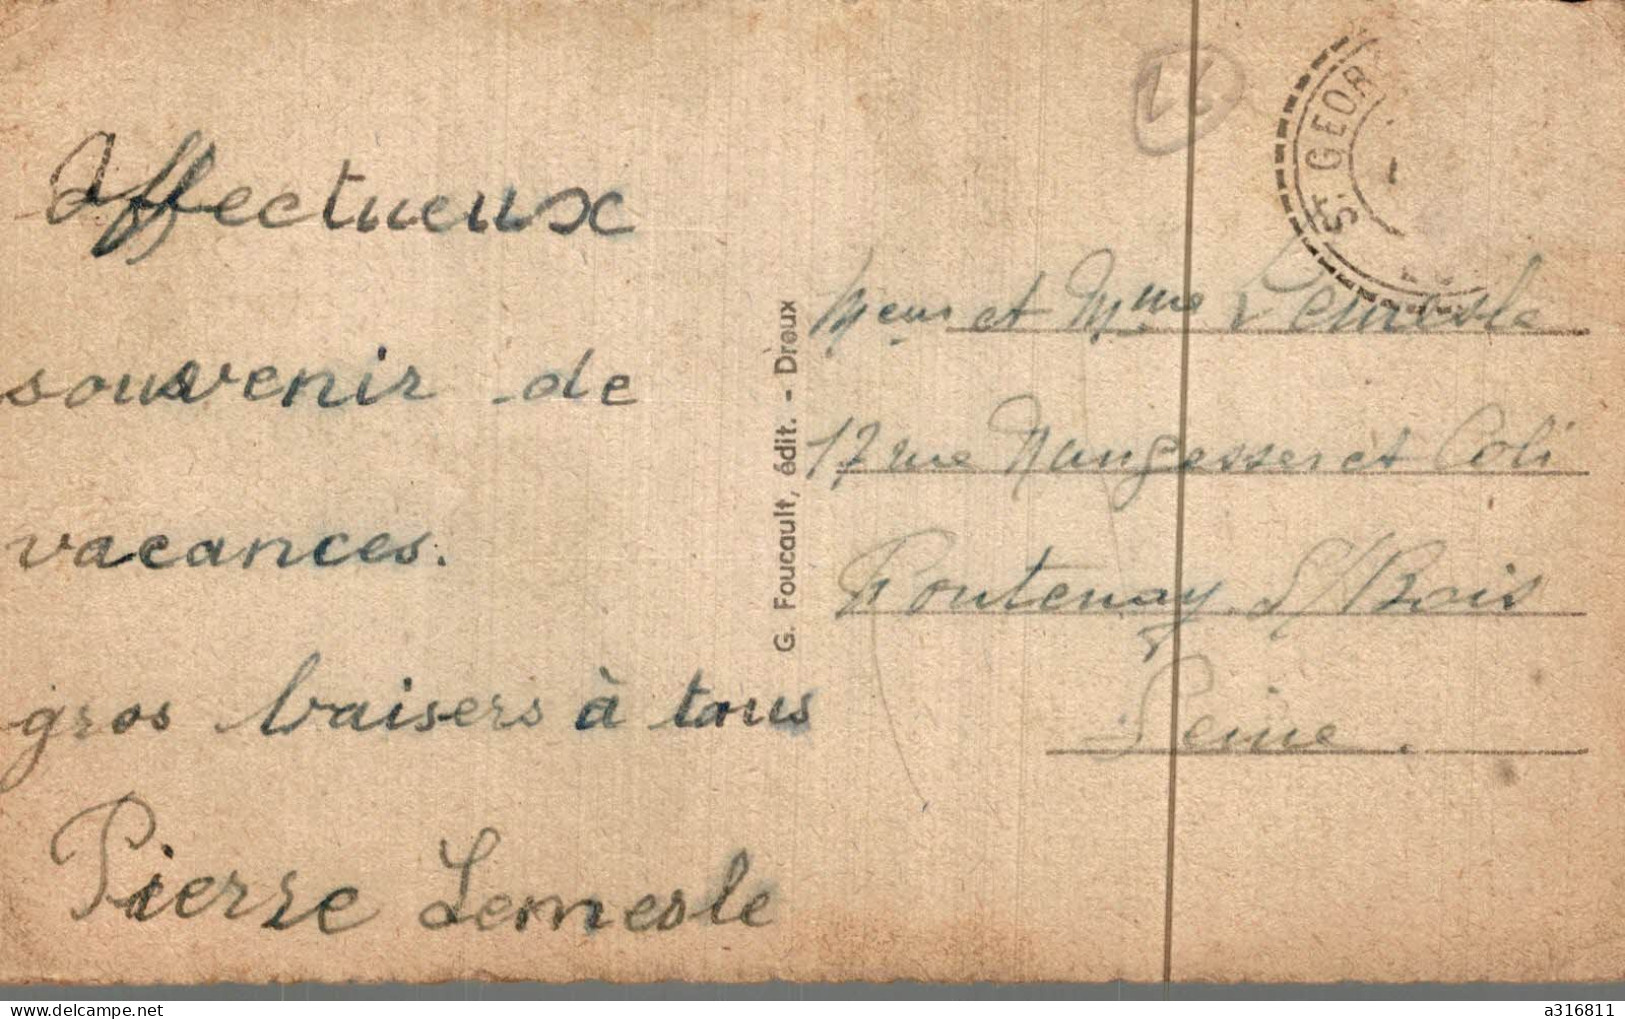 Affectueux
souvenir de
vacances.
gros baisers à tous
Pierre Lemesle
G. Foucault, édit. - Dreux
28
ST GEOR
Meur et Mme Lemesle
17 rue Nungesser et Coli
Fontenay S/Bois
Seine.
a316811